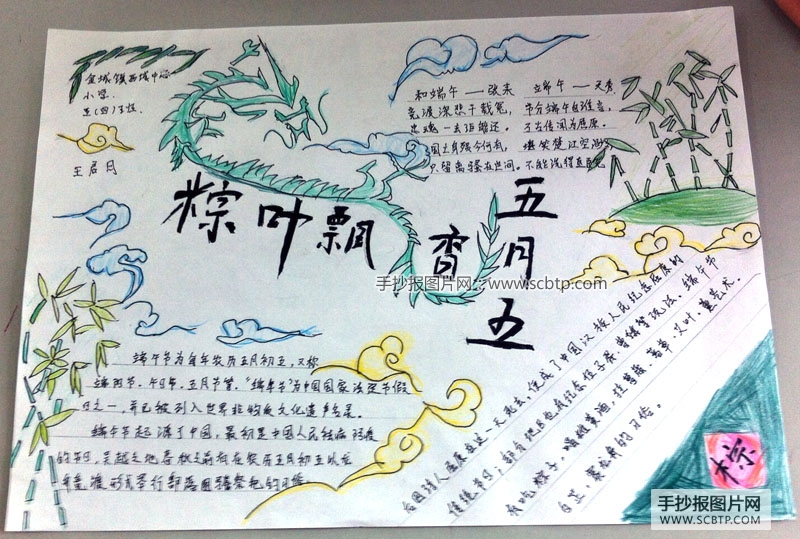 金城镇西城中心
小学
王启月
和端午 — 张耒
竞渡深悲千载冤，
忠魂一去讵能还。
国亡身殒今何有，
只留离骚在世间。
端午 — 文秀
节分端午自谁言，
万古传闻为屈原。
堪笑楚江空渺
不能洗得直臣冤
粽叶飘香
五月五
手抄报图片网：www.scbtp.com
端午节为每年农历五月初五，又称
端阳节、午日节、五月节等。“端午节”为中国国家法定节假
日之一，并已被列入世界非物质文化遗产名录。
端午节起源于中国，最初是中国人民祛病防疫
的节日，吴越之地春秋之前有在农历五月初五以
龙舟竞渡形式举行部落图腾祭祀的习俗。
在这一天死去，便成了中国汉族人民纪念屈原的
传统节日；部分地区也有纪念伍子胥、曹娥等说法。端午节
有吃粽子，喝雄黄酒，挂菖蒲、蒿草、艾叶，薰艺术、
白芷，赛龙舟的习俗。
粽
手抄报图片网
WWW.SCBTP.COM